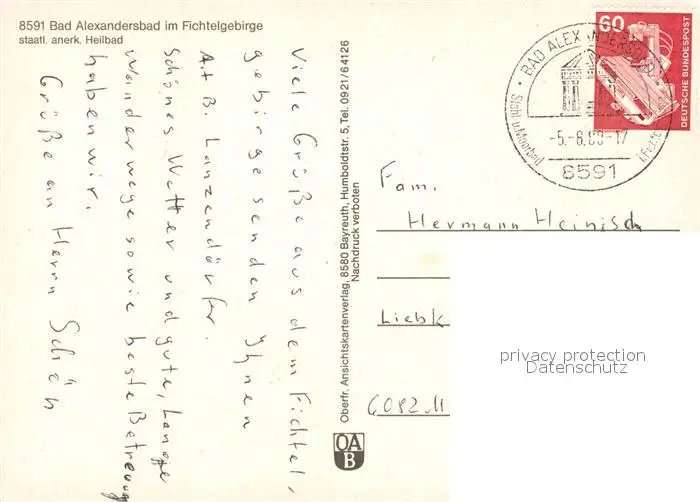 8591 Bad Alexandersbad im Fichtelgebirge
staatl. anerk. Heilbad
Viele Grüße aus dem Fichtel,
gebirge senden Ihnen
A. + B. Lanzendörfer.
Schönes Wetter und gute, Lange
Wanderwege sowie beste Betreuung
haben wir.
Grüße an Herrn Schön
Oberfr. Ansichtskartenverlag, 8580 Bayreuth, Humboldtstr. 5, Tel. 0921/64126
Nachdruck verboten
OA
B
60
DEUTSCHE BUNDESPOST
BAD ALEXANDERSBAD
Moorbad
8591
Fam.
Hermann Heinisch
Liebk
6082 M
privacy protection
Datenschutz